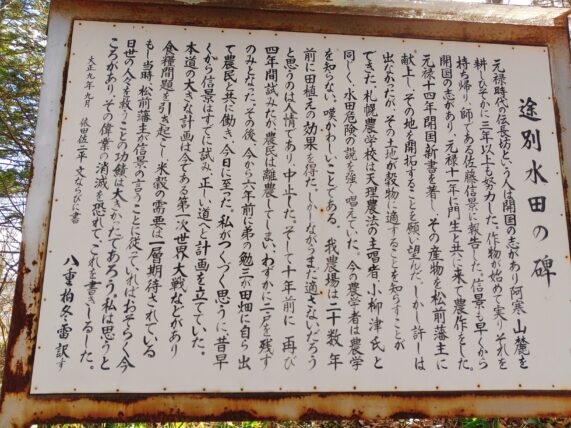 途別水田の碑
元禄時代の伝長坊という人は開国の志があり阿寒山麓を
耕しひそかに三年以上も努力した。作物が始めて実りそれを
持ち帰り、師である佐藤信景に報告した。信景も早くから
開国の志があり、元禄十一年に門生と共に来て農作をした。
元禄十四年開国新書を著し、その産物を松前藩主に
献上し、その地を開拓することを願い望んだ。しかし、許しは
出なかったが、その土地が穀物に適することを知らすことが
できた。札幌農学校は天理農法の主唱者小柳津氏と
同じく、水田危険の説を強く唱えていた。今の農学者は農学
を知らない。嘆かわしいことである。我農場は二十数年
前に田植えの効果を得た。しかしながらまだ適さないだろう
と思うのは人情であり、中止した。そして十年前に再び
四年間試みたが、農民は離農してしまい、わずかに二戸を残す
のみとなった。その後、今から六年前に弟の勉三が田畑に自ら出
て農民と共に働き、今日に至った。私がつくづく思うに、昔早
くから信景はすでに試み、正しい道へと計画を立てていた。
本道の大きな計画は今ある第一次世界大戦などがあり
食糧問題を引き起こし、米穀の需要は一層期待されている
もし、当時、松前藩主が信景の言うことに従っていればおそらく今
日世の人々を救うことの功績は大きかったであろう。私は思うと
ころがあり、その偉業の消滅を恐れて、これを書きしるした。
大正九年九月　依田佐二平 文ならびに書
八重柏冬雷訳す